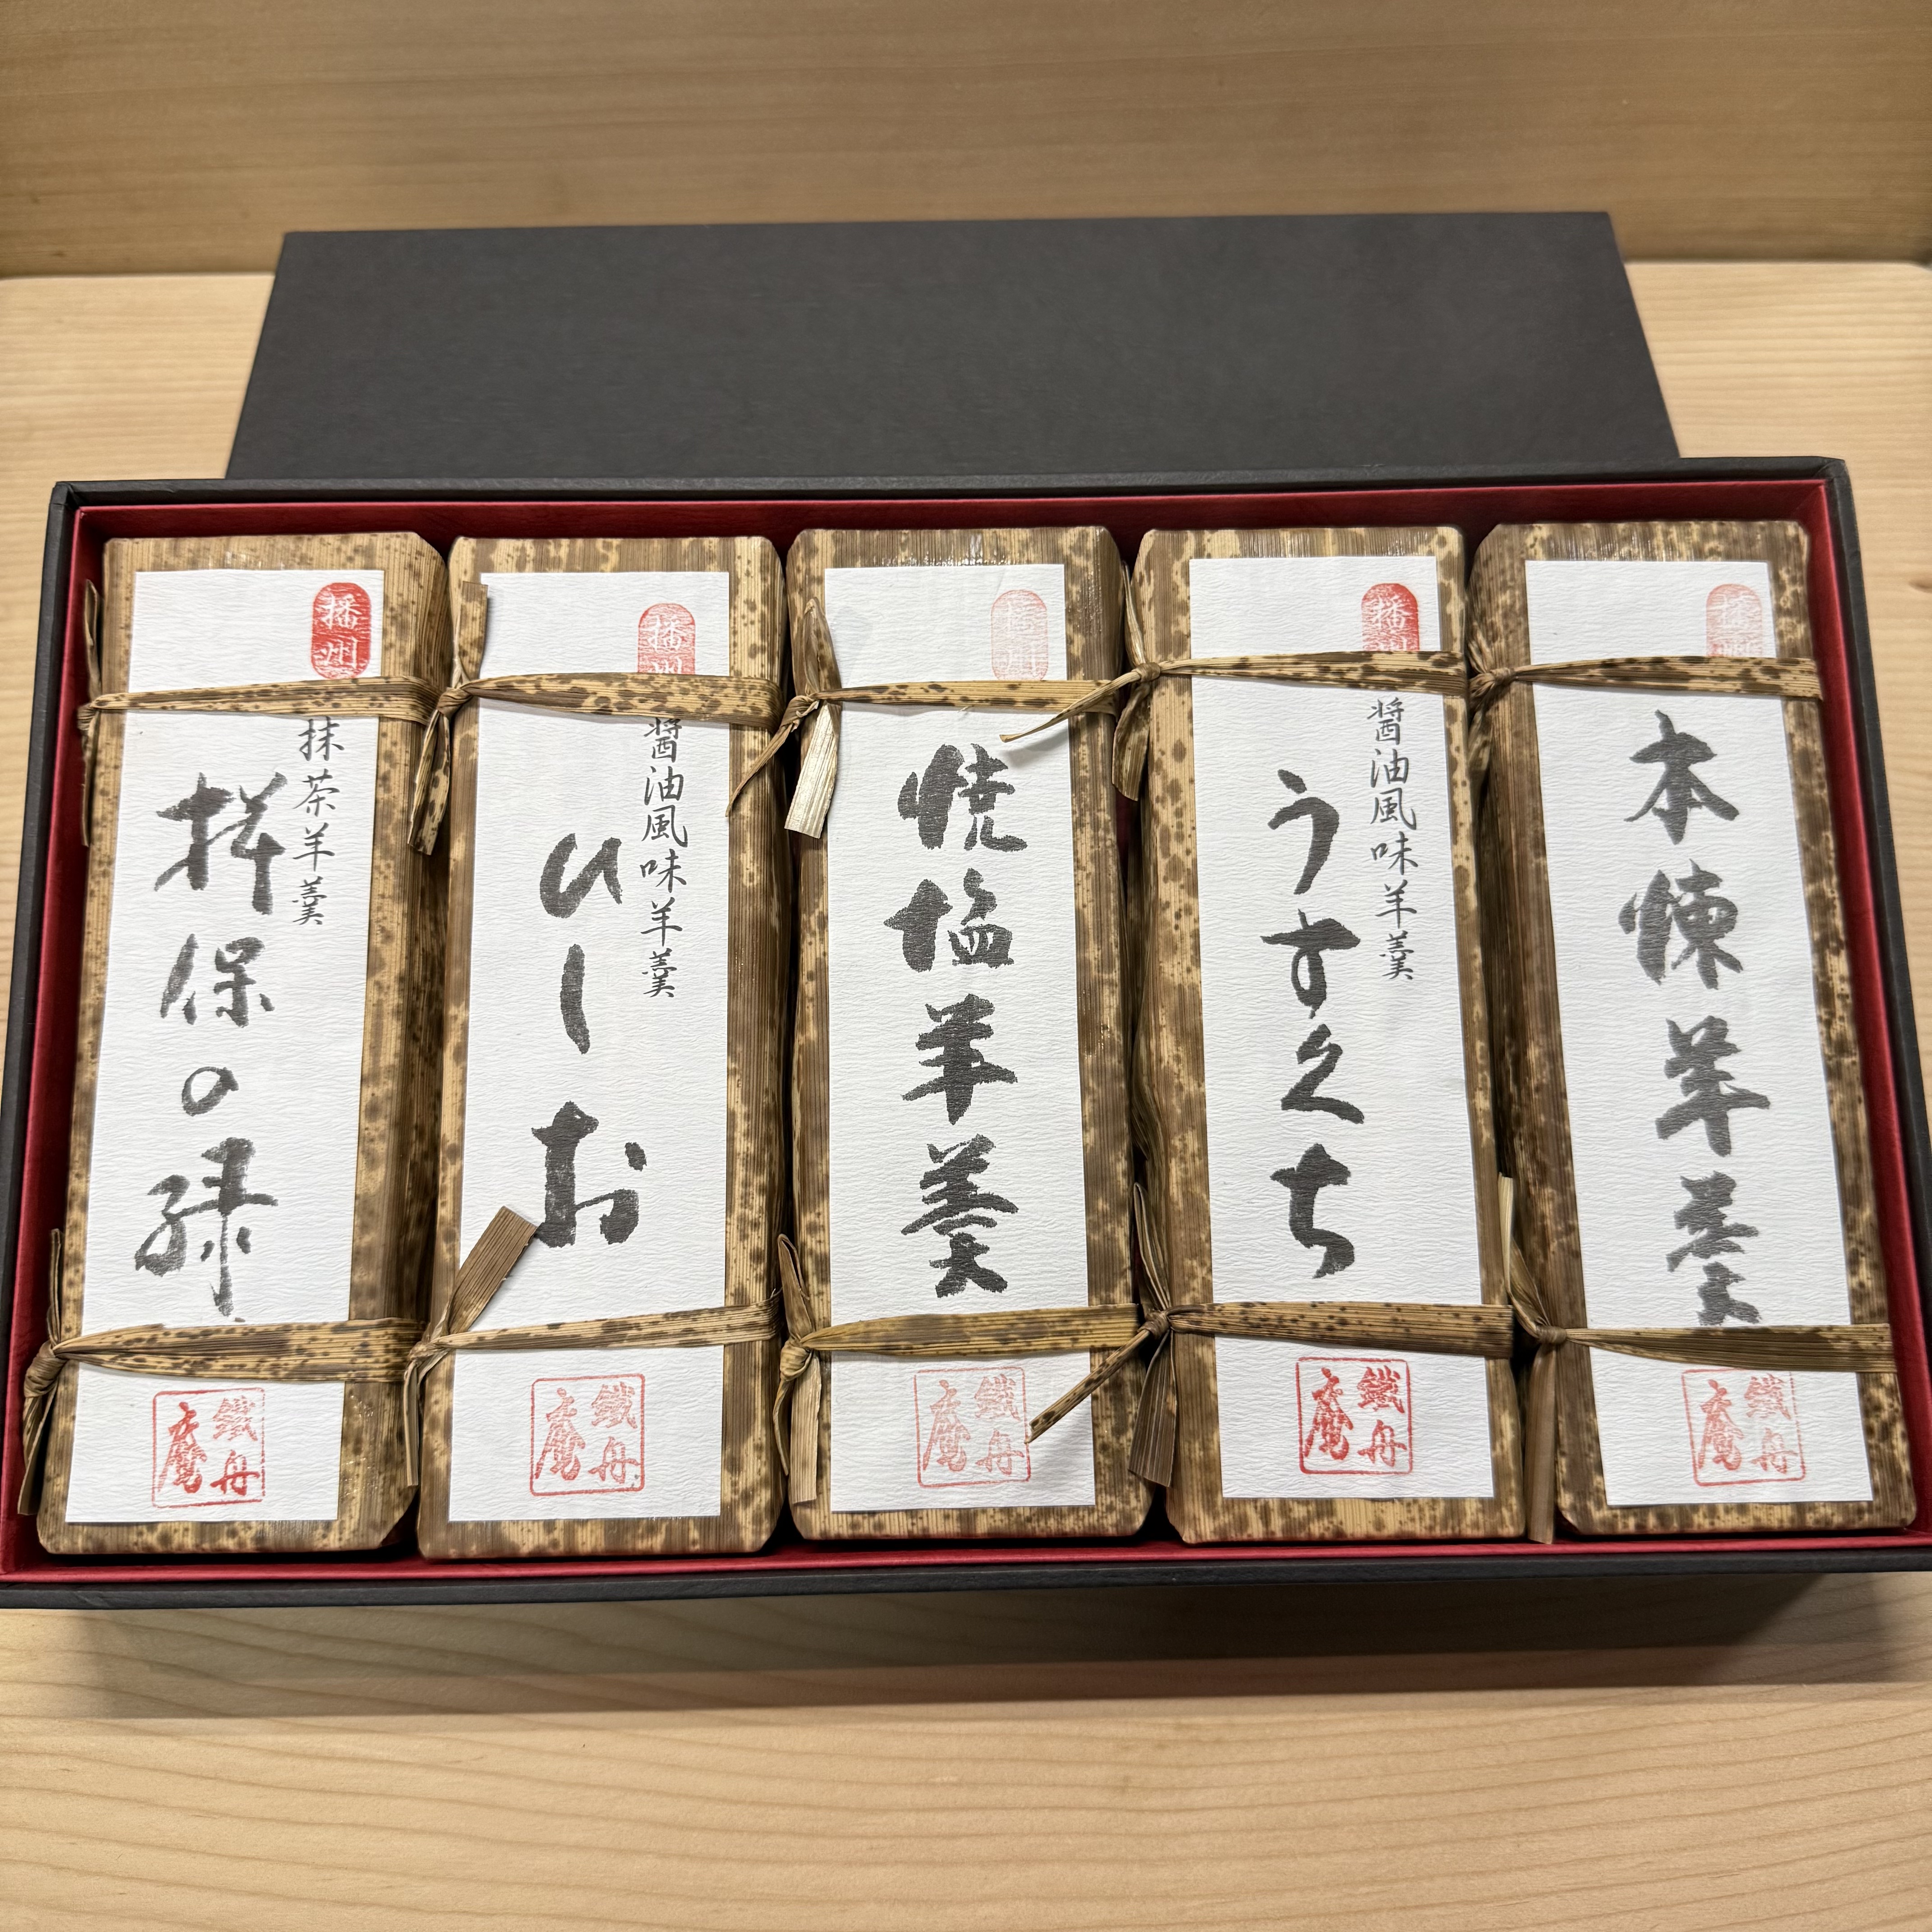 播州
本煉羊羹
鐵舟庵
播州
醤油風味羊羹
うすくち
鐵舟庵
播州
焼塩羊羹
鐵舟庵
播州
醤油風味羊羹
ひしお
鐵舟庵
播州
抹茶羊羹
揖保の緑
鐵舟庵